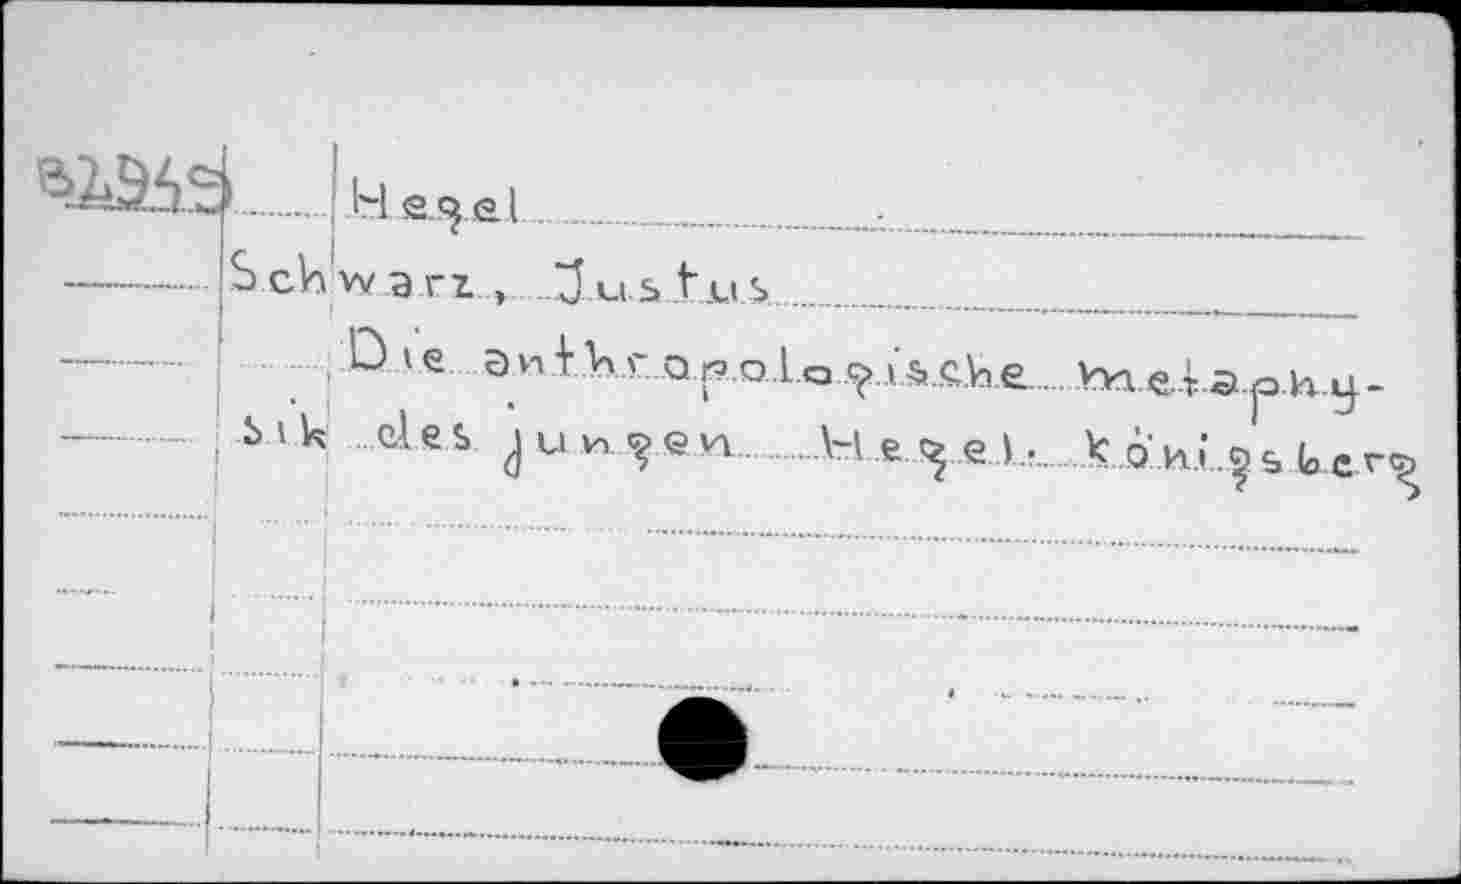 Hegel
Schwarz, Justus
Die anthropologische metaphy-
sik des jungen Hegel. Königsberg